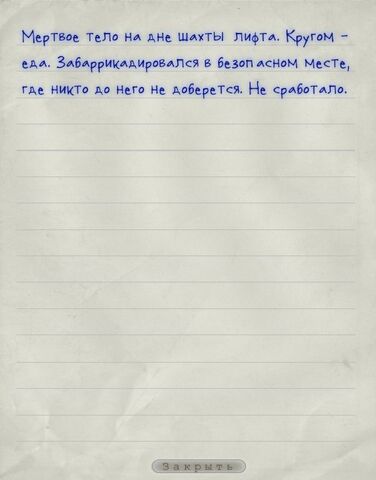 Мертвое тело на дне шахты лифта. Кругом -
еда. Забаррикадировался в безопасном месте,
где никто до него не доберется. Не сработало.
Закрыть